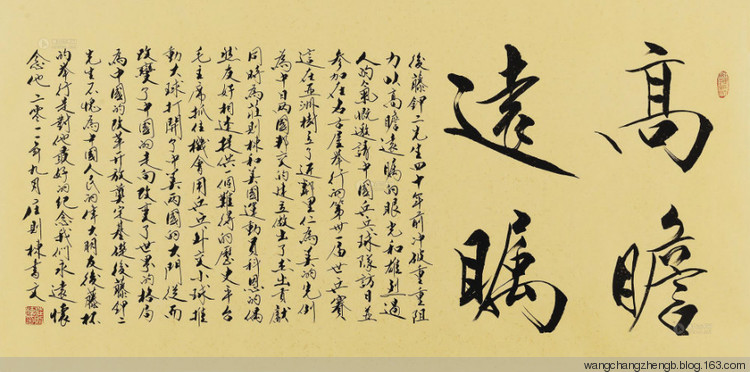 高瞻
遠瞩
後藤鉀二先生四十年前冲破重重阻
力以高瞻遠瞩的眼光和雄烈過
人的氣慨邀請中國乒乓球隊訪日並
參加在名古屋舉行的第卅一届世乒賽
這在亞洲樹立了近鄰里仁為美的先例
為中日两國邦交的建立做出了杰出貢獻
同時為莊则棟和美國運動員科恩的偶
然友好相遇提供一個難得的歷史平台
毛主席抓住機會用乒乓外交小球推
動大球打開了中美两國的大門從而
改變了中國的走向改变了世界的格局
為中國的改革开放奠定基礎後藤鉀二
先生不愧為中國人民的偉大朋友後藤杯
的舉行是對他最好的紀念我們永遠懷
念他 二零一一年九月 庄则棟書文
wangchangzhengb.blog.163.com